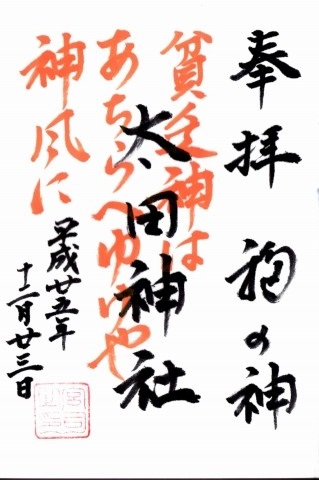 奉拝
の神
貧乏神は
あちらへゆけや
神風に
太田神社
平成廿五年
十二月廿三日